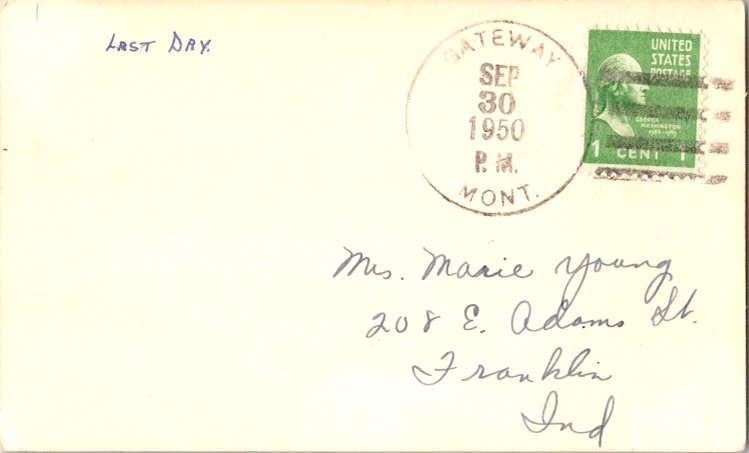 Last Day.
GATEWAY
SEP
30
1950
P.M.
MONT.
UNITED
STATES
POSTAGE
GEORGE
WASHINGTON
1789-1797
1 CENT 1
Mrs. Marie Young
208 E. Adams St.
Franklin
Ind